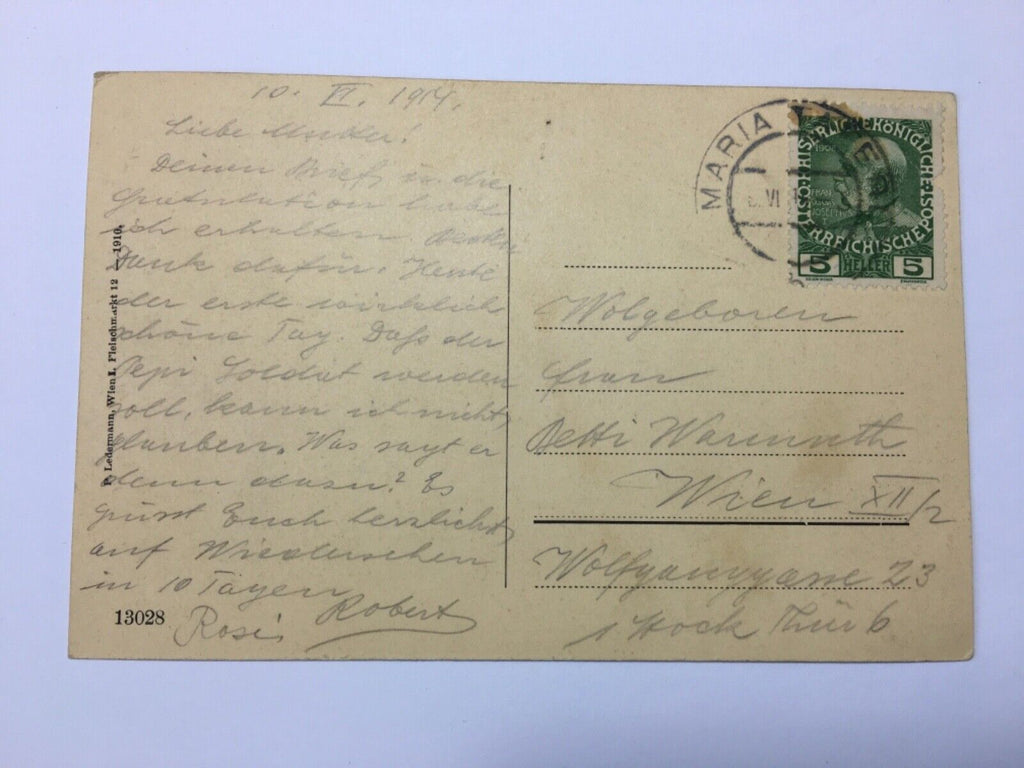 10. VI. 1914.
Liebe Mutter!
Deinen Brief u. die
Gratulation habe
ich erhalten. Besten
Dank dafür. Heute
der erste wirklich
schöne Tag. Daß der
Pepi Soldat werden
soll, kann ich nicht
glauben. Was sagt er
denn dazu? Es
grüsst Euch herzlichst,
auf Wiedersehen
in 10 Tagen
Robert
Rosi
13028
P. Ledermann, Wien I., Fleischmarkt 12 1910.
MARIA
VI
1908
FRANZ
JOSEPH I
KÖNIGLICHE
ÖSTERREICHISCHE POST
5 HELLER 5
Wolgeboren
Frau
Betti Warmuth
Wien XII/2
Wolfganggasse 23
1 Stock Thür 6